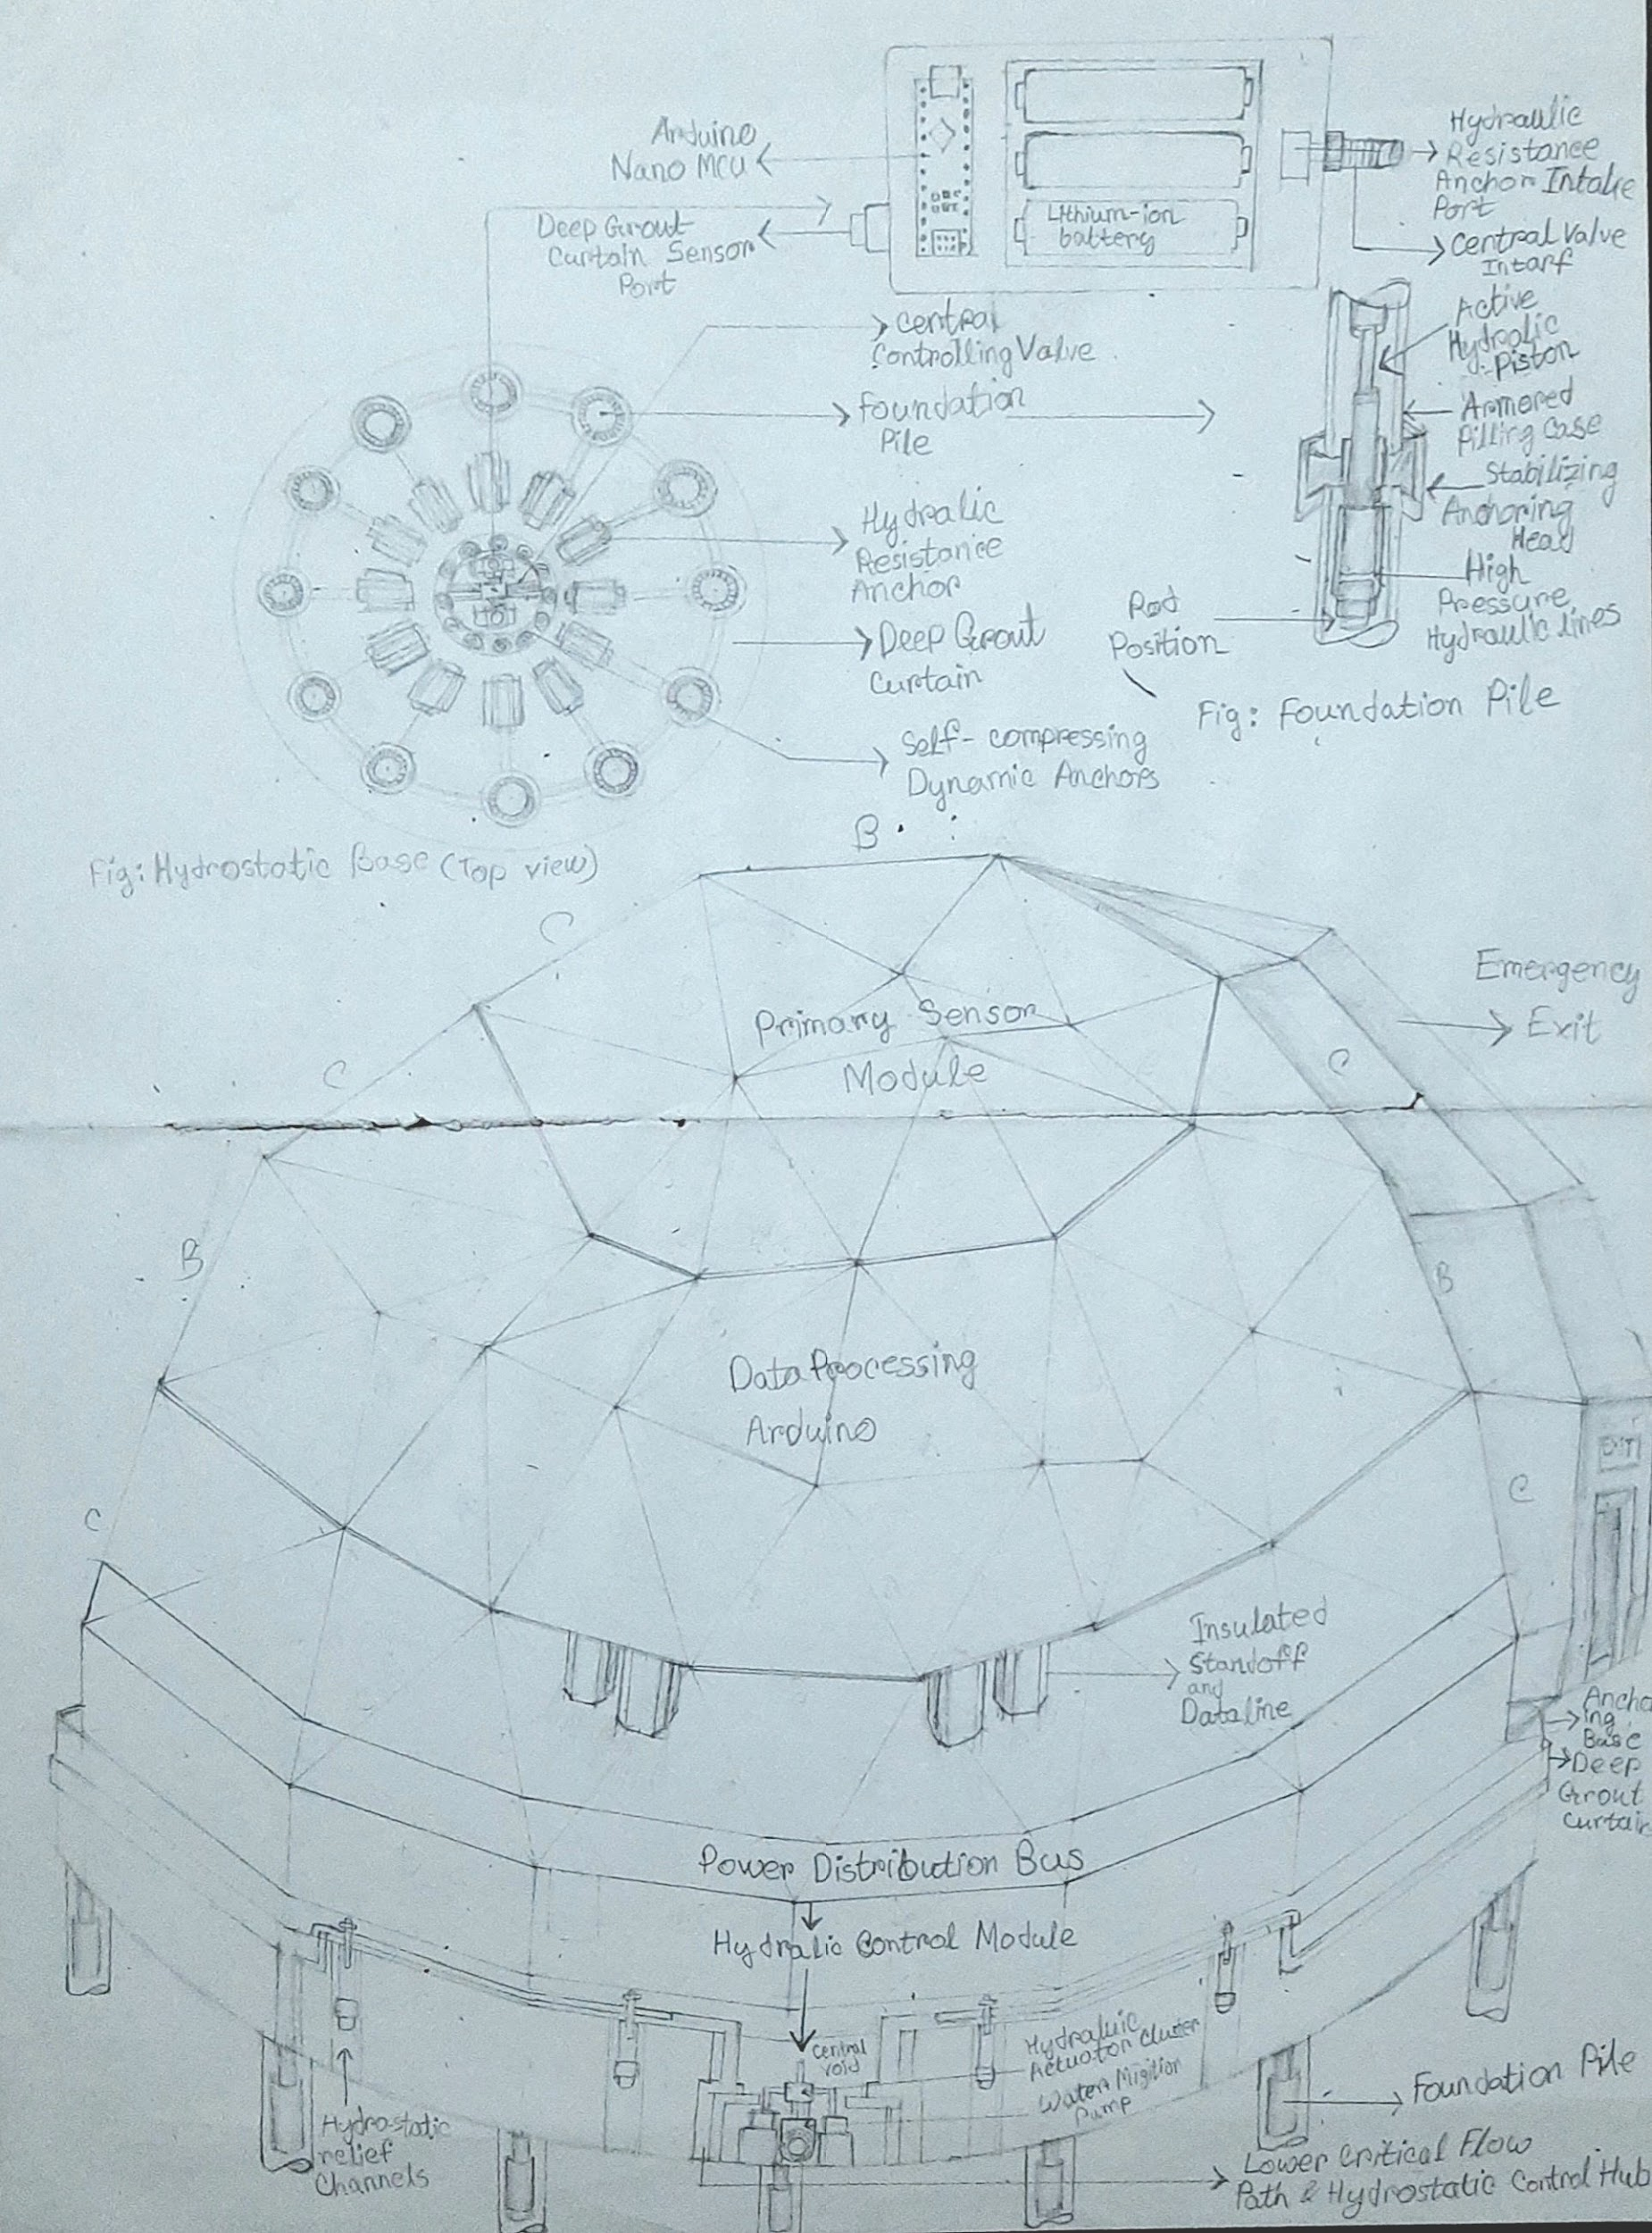 Arduino
Nano MCU
Deep Grout
Curtain Sensor
Port
Lithium-ion
battery
Hydraulic
Resistance
Anchor Intake
Port
Central Valve
Intarf
Central
Controlling Valve
Foundation
Pile
Hydralic
Resistance
Anchor
Deep Grout
Curtain
Self-compressing
Dynamic Anchors
Fig: Hydrostatic Base (Top view)
Active
Hydrolic
Piston
Armored
Pilling Case
Stabilizing
Anchoring
Head
High
Pressure
Hydraulic lines
Rod
Position
Fig: Foundation Pile
B
C
C
B
C
Primary Sensor
Module
Emergency
Exit
C
B
C
EXIT
Data Processing
Arduino
Insulated
Standoff
and
Dataline
Ancho
ing
Base
Deep
Grout
Curtain
Power Distribution Bus
Hydralic Control Module
Central
void
Hydraulic
Actuator Cluster
Water Migition
Pump
Hydrostatic
relief
Channels
Foundation Pile
Lower Critical Flow
Path & Hydrostatic Control Hub